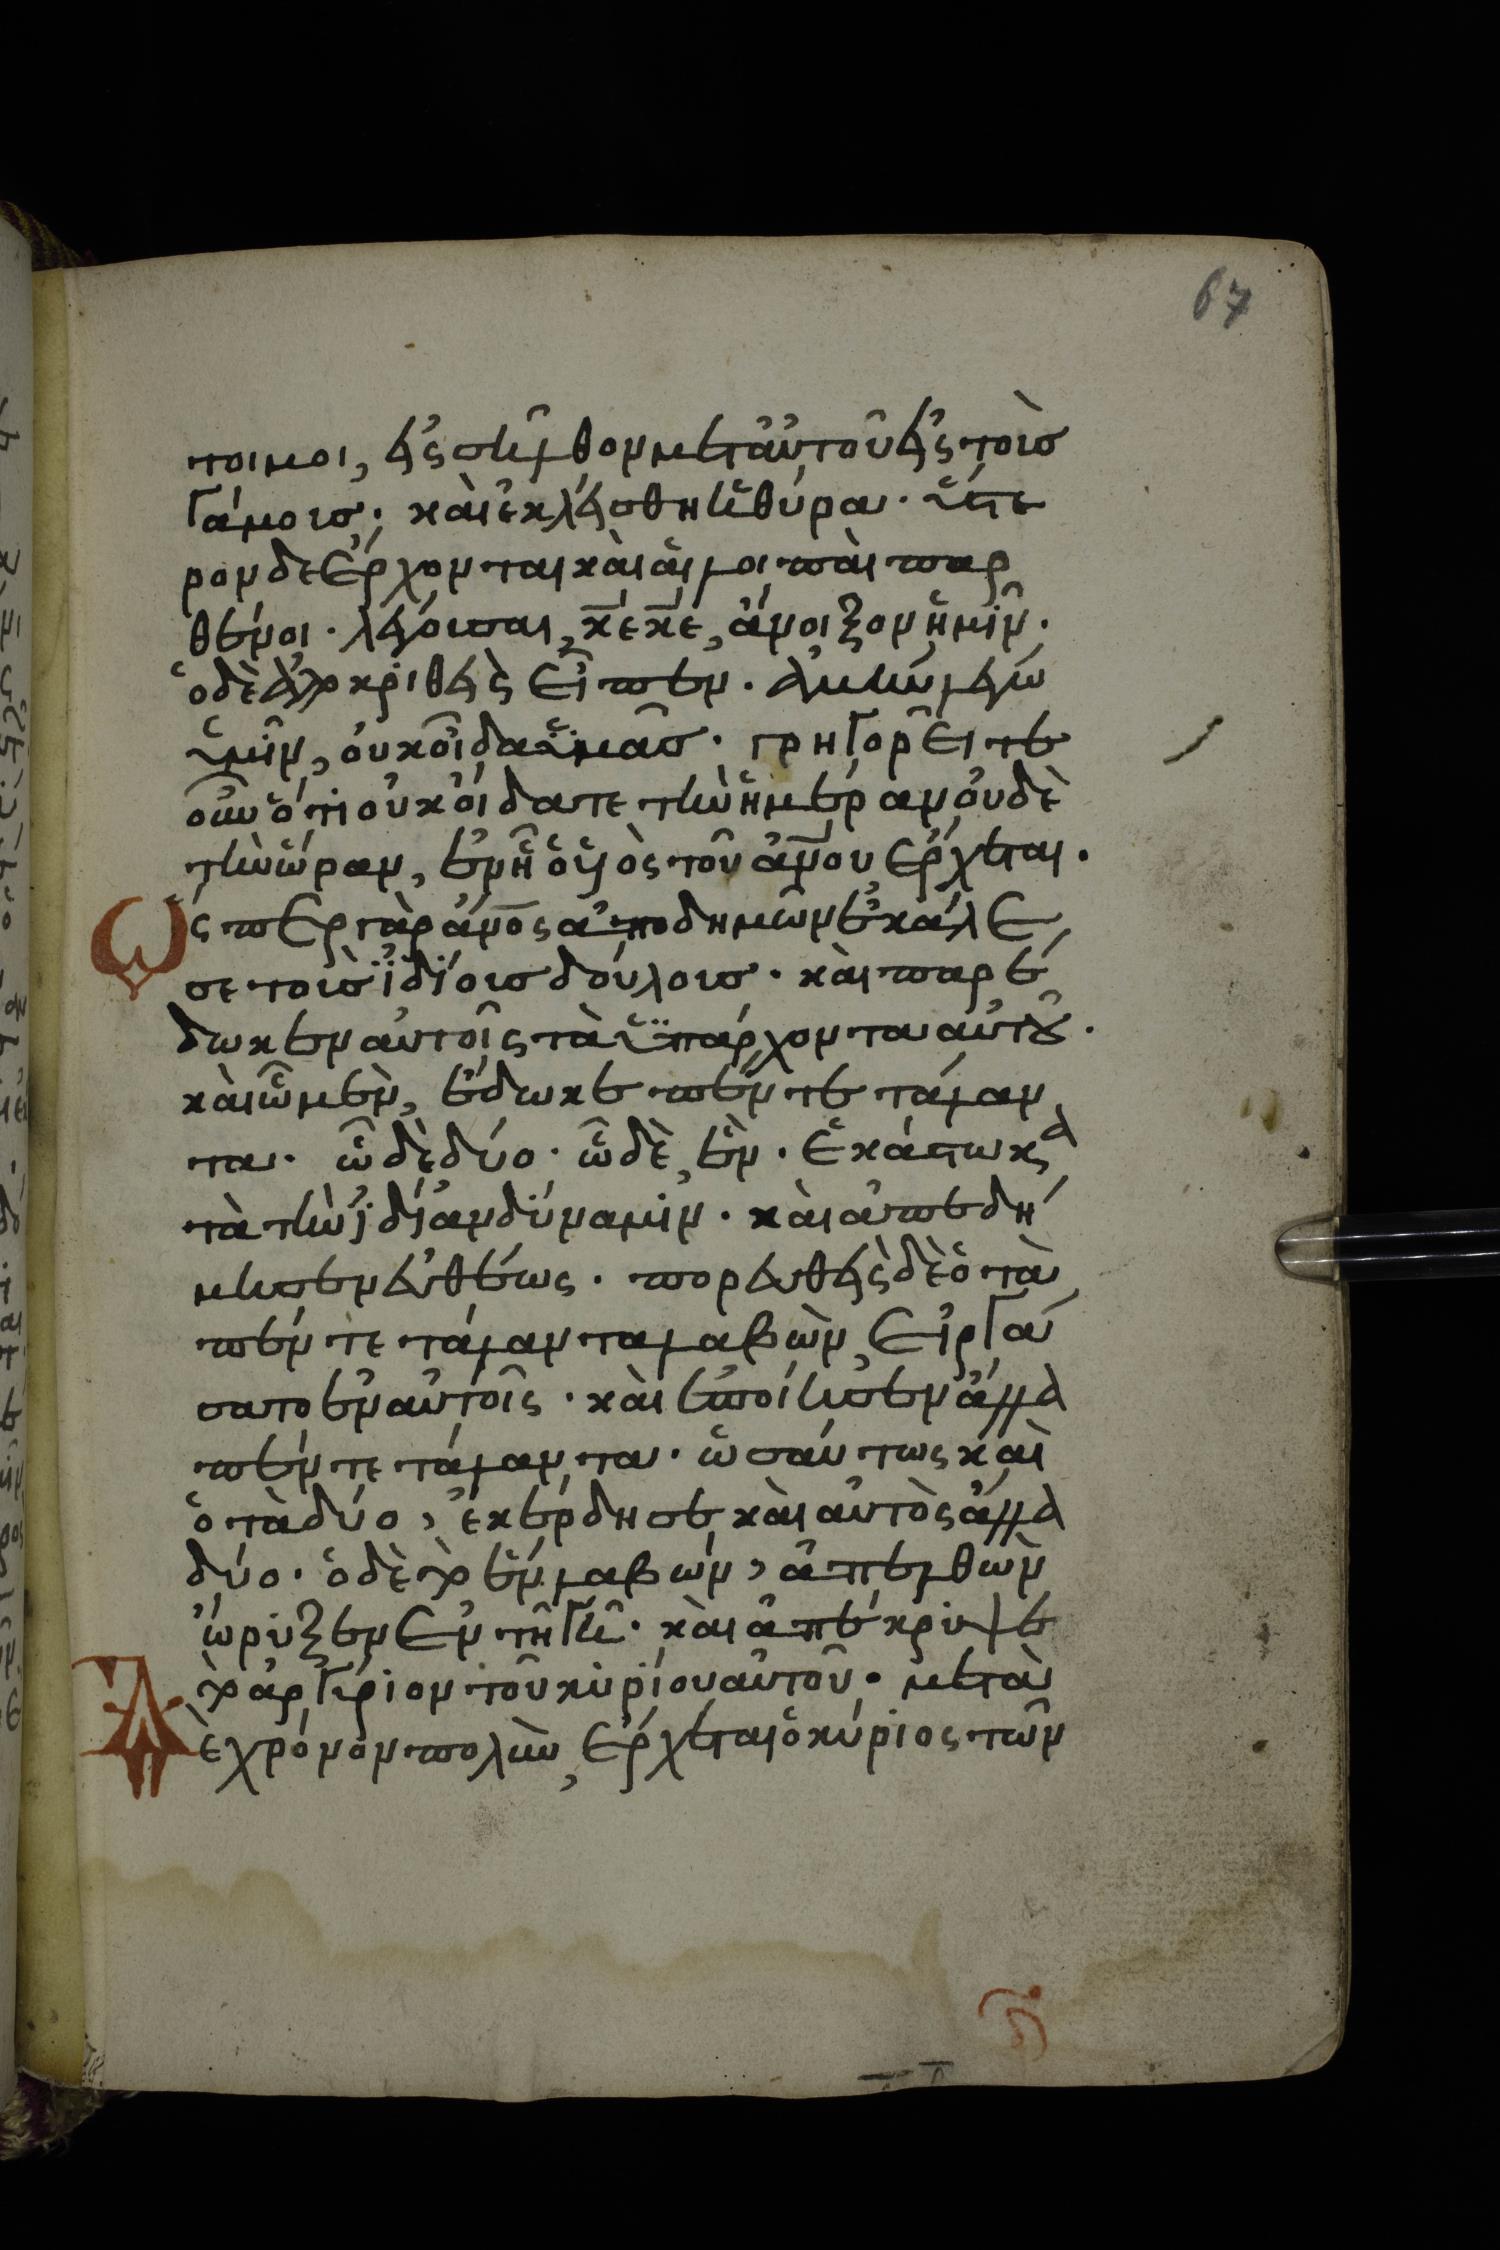 67
τοιμοι, εἰσῆλθον μετ αὐτοῦ εἰς τοὺσ
γάμουσ· καὶ ἐκλείσθη ἡ θύρα· ὕστε
ρον δε ἔρχονται καὶ αἱ λοιπαὶ παρ
θένοι· λέγουσαι, κ̅ε κ̅ε, ἄνοιξον ἡμῖν·
ὁ δὲ ἀποκριθεὶς εἶπεν· ἀμὴν λέγω
ὑμῖν, οὐκ οἶδα ὑμᾶσ· γρηγορεῖτε
οὖν ὅτι οὐκ οἴδατε τὴν ἡμέραν οὐδὲ
τὴν ὥραν, ἐν ἧ ὁ υἱὸς τοῦ ἀν̅ου ἔρχεται·
Ὥςπερ γὰρ ἄν̅ος ἀποδημῶν ἐκάλε
σε τοὺσ ἰδίουσ δούλουσ· καὶ παρέ
δωκεν αὐτοῖς τὰ ὑπάρχοντα αὐτοῦ·
καὶ ὧ μὲν, ἔδωκε πέντε τάλαν
τα· ὧ δὲ δύο· ὧ δὲ, ἓν· ἑκάστω κα
τὰ τὴν ἰδίαν δύναμιν· καὶ ἀπεδή
μησεν εὐθέως· πορευθεὶς δὲ ὁ τὰ
πέντε τάλαντα λαβὼν, εἰργά
σατο ἐν αὐτοῖς· καὶ ἐποίησεν ἄλλα
πέντε τάλαντα· ὡσαύτως καὶ
ὁ τὰ δύο, ἐκέρδησε καὶ αὐτὸς ἄλλα
δύο· ὁ δὲ τὸ ἓν λαβών, ἀπελθὼν
ὤρυξεν ἐν τῆ γῆ· καὶ ἀπέκρυψε
τὸ ἀργύριον τοῦ κυρίου αὐτοῦ· μετὰ
Δὲ χρόνον πολὺν, ἔρχεται ὁ κύριος τῶν